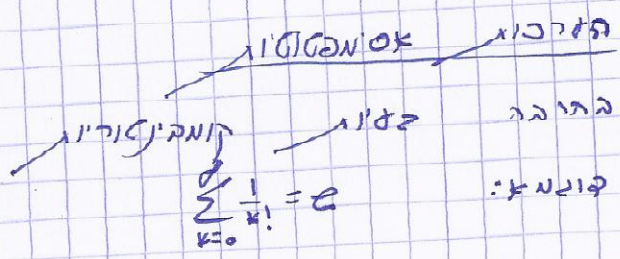 הערכות אסימפטוטיות
בהרבה בעיות קומבינטוריות
דוגמא: $\sum_{k=0}^{\infty} \frac{1}{k!} = e$